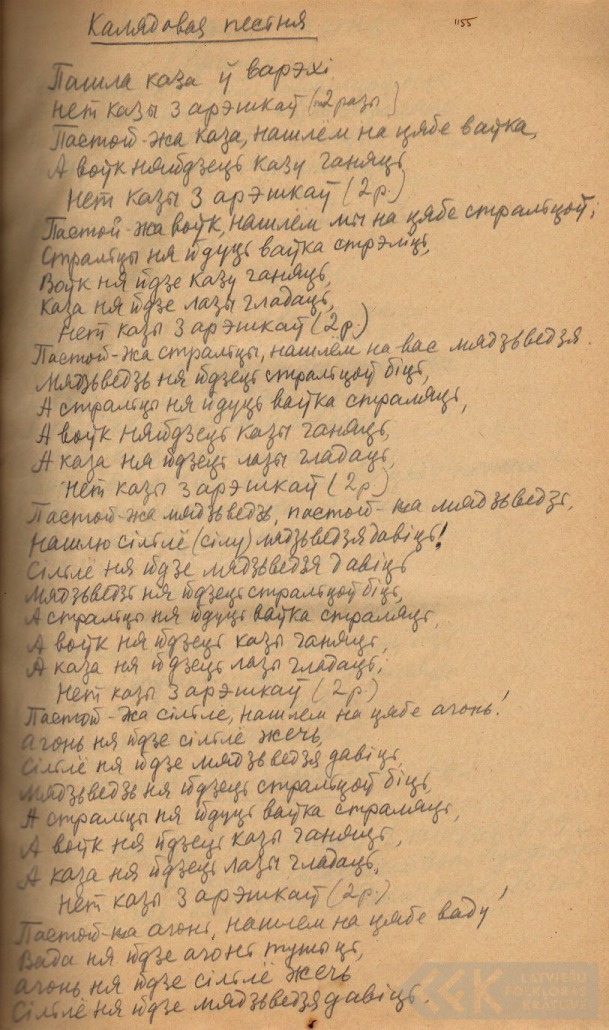 1155
Калядовая пестня
Пашла каза ў варэхі
нет казы з арэшкаў (2 разы)
Пастой-жа каза, нашлём на цябе ваўка,
А воўк няйдзець казу ганяць
Нет казы з арэшкаў (2 р.)
Пастой-жа воўк, нашлем мы на цябе стральцоў;
Стральцы ня йдуць ваўка стрэліць,
Воўк ня йдзе казу ганяць,
Каза ня йдзе лазы гладаць,
Нет казы з арэшкаў (2 р.)
Пастой-жа стральцы, нашлем на вас мядзьведзя.
Мядзьведзь ня йдзець стральцоў біць,
А стральцы ня йдуць ваўка страляць,
А воўк няйдзець казы ганяць,
А каза ня йдзець лазы гладаць,
Нет казы з арэшкаў (2 р.)
Пастой-жа мядзьведзь, пастой-жа мядзьведзь,
Нашлю сільлё (сілу) мядзьведзя давіць!
Сільлё ня йдзе мядзьведзя давіць
Мядзьведзь ня йдзець стральцоў біць,
А стральцы ня йдуць ваўка страляць,
А воўк ня йдзець казы ганяць,
А каза ня йдзець лазы гладаць,
Нет казы з арэшкаў (2 р.)
Пастой-жа сільле, нашлем на цябе агонь!
Агонь ня йдзе сільлё жечь,
Сільлё ня йдзе мядзьведзя давіць,
Мядзьведзь ня йдзець стральцоў біць,
А стральцы ня йдуць ваўка страляць,
А воўк ня йдзець казы ганяць,
А каза ня йдзець лазы гладаць,
Нет казы з арэшкаў (2 р.)
Пастой-жа агонь, нашлем на цябе ваду!
Вада ня йдзе агонь тушыць,
Агонь ня йдзе сільлё жечь
Сільлё ня йдзе мядзьведзя давіць.
LATVIEŠU
FOLKLORAS
KRĀTUVE